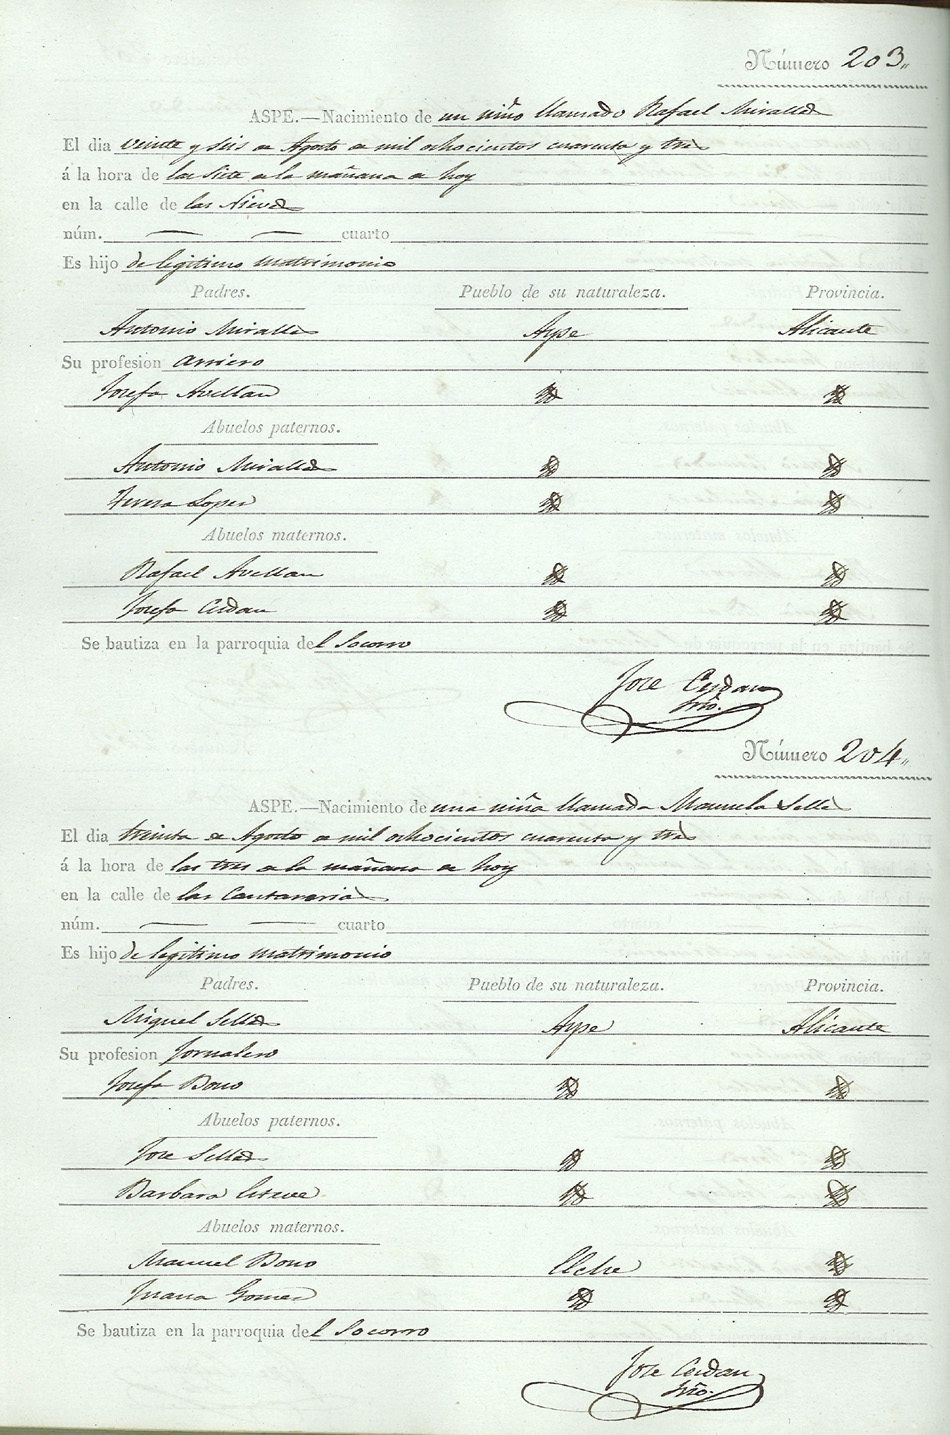 Número 203.
ASPE.—Nacimiento de un niño llamado Rafael Miralles
El dia veinte y seis de Agosto de mil ochocientos cuarenta y tres
á la hora de las siete de la mañana de hoy
en la calle de las Nieves
núm. — — cuarto
Es hijo de legitimo matrimonio
Padres. Pueblo de su naturaleza. Provincia.
Antonio Miralles Aspe Alicante
Su profesion arriero
Josefa Avellan
Abuelos paternos.
Antonio Miralles
Teresa Lopez
Abuelos maternos.
Rafael Avellan
Josefa Cerdan
Se bautiza en la parroquia del Socorro
Jose Cerdan
Srio.
Número 204.
ASPE.—Nacimiento de una niña llamada Manuela Selles
El dia treinta de Agosto de mil ochocientos cuarenta y tres
á la hora de las tres de la mañana de hoy
en la calle de las Cantarerias
núm. — — cuarto
Es hijo de legitimo matrimonio
Padres. Pueblo de su naturaleza. Provincia.
Miguel Selles Aspe Alicante
Su profesion Jornalero
Josefa Bono
Abuelos paternos.
Jose Selles
Barbara Esteve
Abuelos maternos.
Manuel Bono Elche
Juana Gomez
Se bautiza en la parroquia del Socorro
Jose Cerdan
Srio.